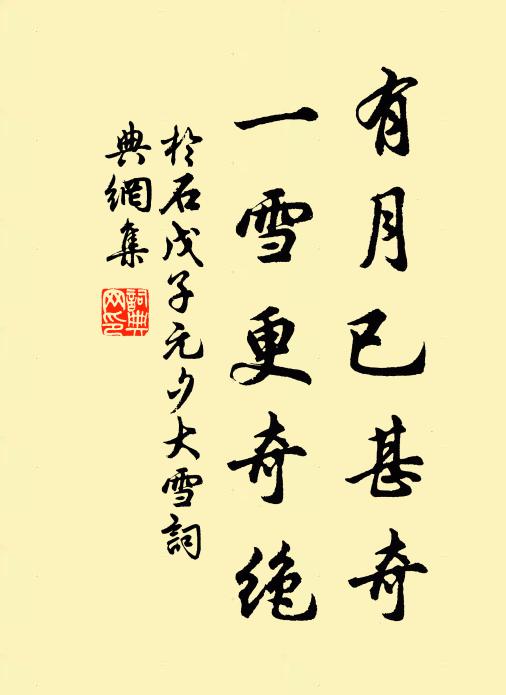 有月已甚奇
一雪更奇绝
於石戊子元夕大雪詞
典網集
詞典
网印